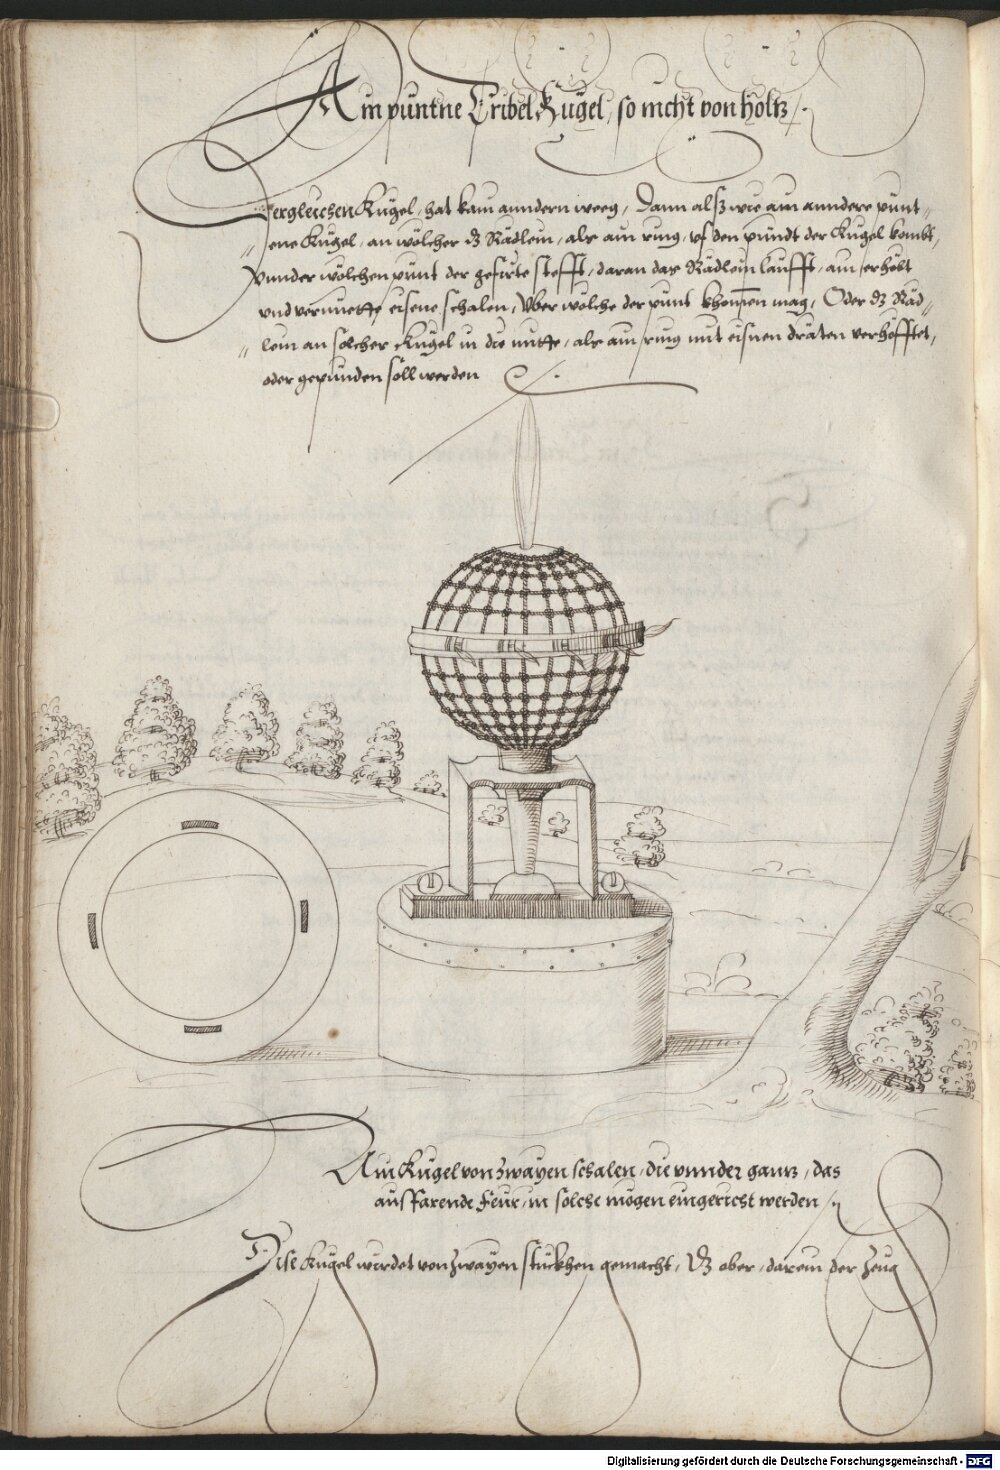 Ain puntne Tribel Kugel, so nicht von holtz.
Dergleichen Kugel, hat kain anndern weeg, Dann alß wie ain anndere punt„
„ene Kugel, an wölcher dz Rädlein, alß ain ring, uf den pundt der Kugel kombt,
Vnnder wölchen punt der gefirte stefft, daran das Rädlein laufft, ain erhöbt
vnd vernüette eisene schalen, Vber wölche der punt khomen mag, Oder dz Räd„
„lein an solcher Kugel in die mitte, alß ain ring mit eisnen dräten verhefftet,
oder gepunden soll werden
Ain Kugel von zwayen schalen, die vnnder gantz, das
ausfarende feur, in solche mögen eingericht werden
Dise Kugel würdet von zwayen stuckhen gemacht, Dz ober, darein der Zeug
Digitalisierung gefördert durch die Deutsche Forschungsgemeinschaft - DFG